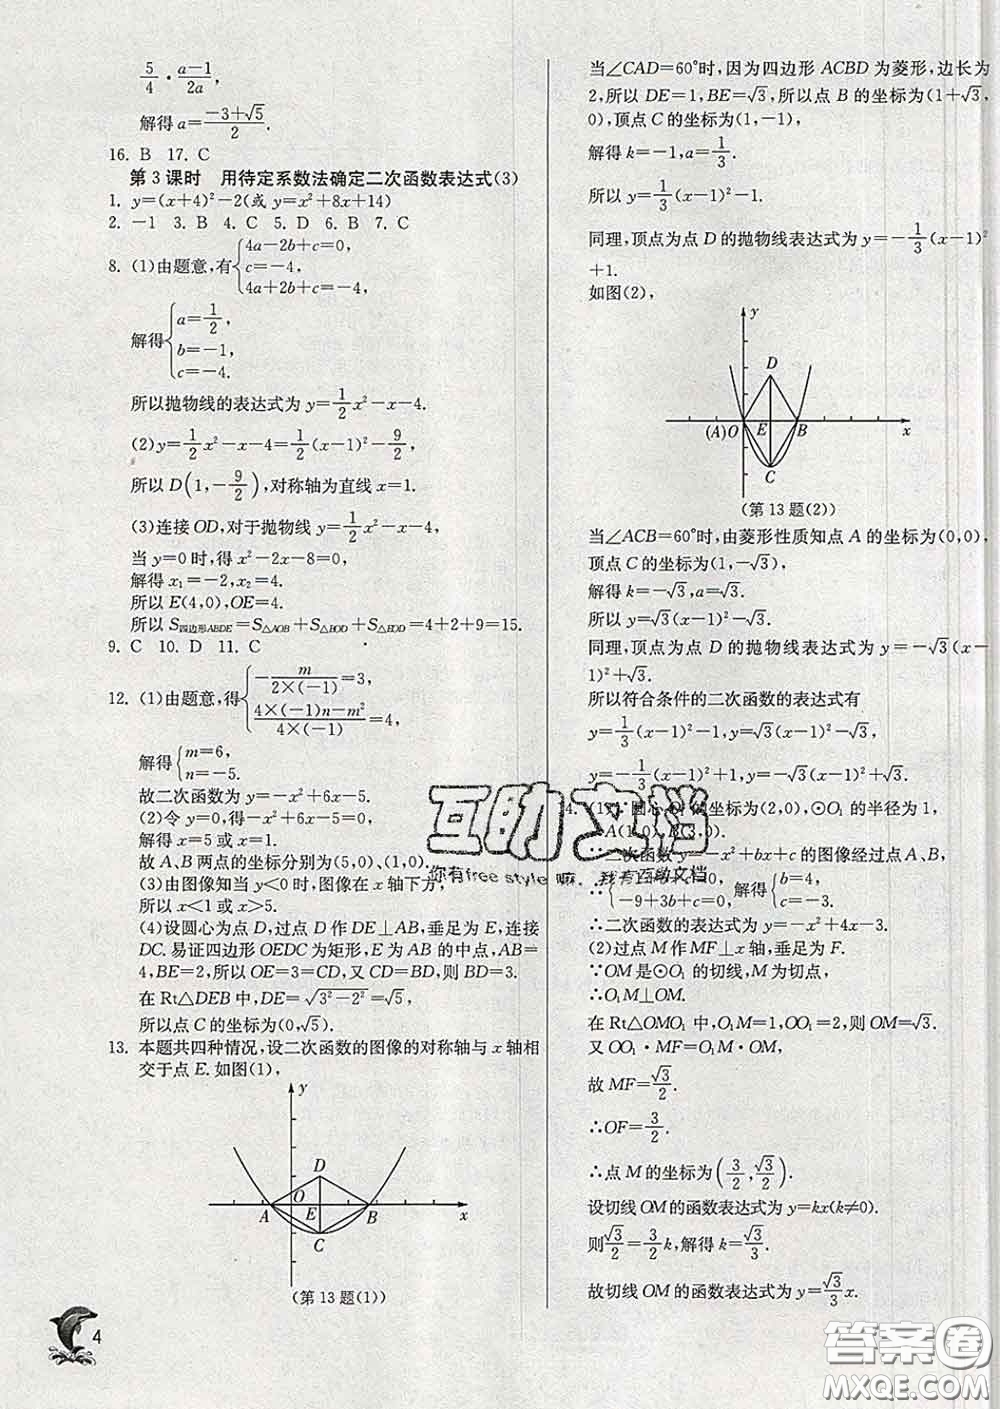 5/4·(a−1)/2a,
解得a=(−3+√5)/2.
16. B 17. C
第3课时 用待定系数法确定二次函数表达式(3)
1. y=(x+4)²−2(或 y=x²+8x+14)
2. −1 3. B 4. C 5. D 6. B 7. C
8. (1)由题意,有{4a−2b+c=0,
c=−4,
4a+2b+c=−4,
解得{a=1/2,
b=−1,
c=−4.
所以抛物线的表达式为 y=1/2x²−x−4.
(2)y=1/2x²−x−4=1/2(x−1)²−9/2,
所以 D(1,−9/2),对称轴为直线 x=1.
(3)连接 OD,对于抛物线 y=1/2x²−x−4,
当 y=0 时,得 x²−2x−8=0,
解得 x₁=−2,x₂=4.
所以 E(4,0),OE=4.
所以 S四边形ABDE=S△AOB+S△BOD+S△EOD=4+2+9=15.
9. C 10. D 11. C
12. (1)由题意,得{−m/(2×(−1))=3,
(4×(−1)n−m²)/(4×(−1))=4,
解得{m=6,
n=−5.
故二次函数为 y=−x²+6x−5.
(2)令 y=0,得−x²+6x−5=0,
解得 x=5或 x=1.
故 A、B 两点的坐标分别为(5,0)、(1,0).
(3)由图像知当 y<0 时,图像在 x 轴下方,
所以 x<1 或 x>5.
(4)设圆心为点 D,过点 D 作 DE⊥AB,垂足为 E,连接
DC. 易证四边形 OEDC 为矩形,E 为 AB 的中点,AB=
4,BE=2,所以 OE=3=CD,又 CD=BD,则 BD=3.
在 Rt△DEB 中,DE=√(3²−2²)=√5,
所以点 C 的坐标为(0,√5).
13. 本题共四种情况,设二次函数的图像的对称轴与 x 轴相
交于点 E. 如图(1),
y
D
O
A
E
B
x
C
(第13题(1))
4
当∠CAD=60°时,因为四边形 ACBD 为菱形,边长为
2,所以 DE=1,BE=√3,所以点 B 的坐标为(1+√3,
0),顶点 C 的坐标为(1,−1),
解得 k=−1,a=1/3.
所以 y=1/3(x−1)²−1.
同理,顶点为点 D 的抛物线表达式为 y=−1/3(x−1)²
+1.
如图(2),
y
D
(A) O E B x
C
(第13题(2))
当∠ACB=60°时,由菱形性质知点 A 的坐标为(0,0),
顶点 C 的坐标为(1,−√3),
解得 k=−√3,a=√3.
所以 y=√3(x−1)²−√3.
同理,顶点为点 D 的抛物线表达式为 y=−√3(x−
1)²+√3.
所以符合条件的二次函数的表达式有
y=1/3(x−1)²−1,y=√3(x−1)²−√3,
y=−1/3(x−1)²+1,y=−√3(x−1)²+√3.
4. (1)∵圆心 O₁ 的坐标为(2,0),⊙O₁ 的半径为1,
∴A(1,0),B(3,0).
∵二次函数 y=−x²+bx+c 的图像经过点 A、B,
∴{−1+b+c=0,
−9+3b+c=0, 解得{b=4,
c=−3.
∴二次函数的表达式为 y=−x²+4x−3.
(2)过点 M 作 MF⊥x 轴,垂足为 F.
∵OM 是⊙O₁ 的切线,M 为切点,
∴O₁M⊥OM.
在 Rt△OMO₁ 中,O₁M=1,OO₁=2,则 OM=√3.
又 OO₁·MF=O₁M·OM,
故 MF=√3/2.
∴OF=3/2.
∴点 M 的坐标为(3/2,√3/2).
设切线 OM 的函数表达式为 y=kx(k≠0).
则√3/2=3/2k,解得 k=√3/3.
故切线 OM 的函数表达式为 y=√3/3x.
互助文档
你有free style 嘛、我有互助文档
答案圈
MXQE.COM